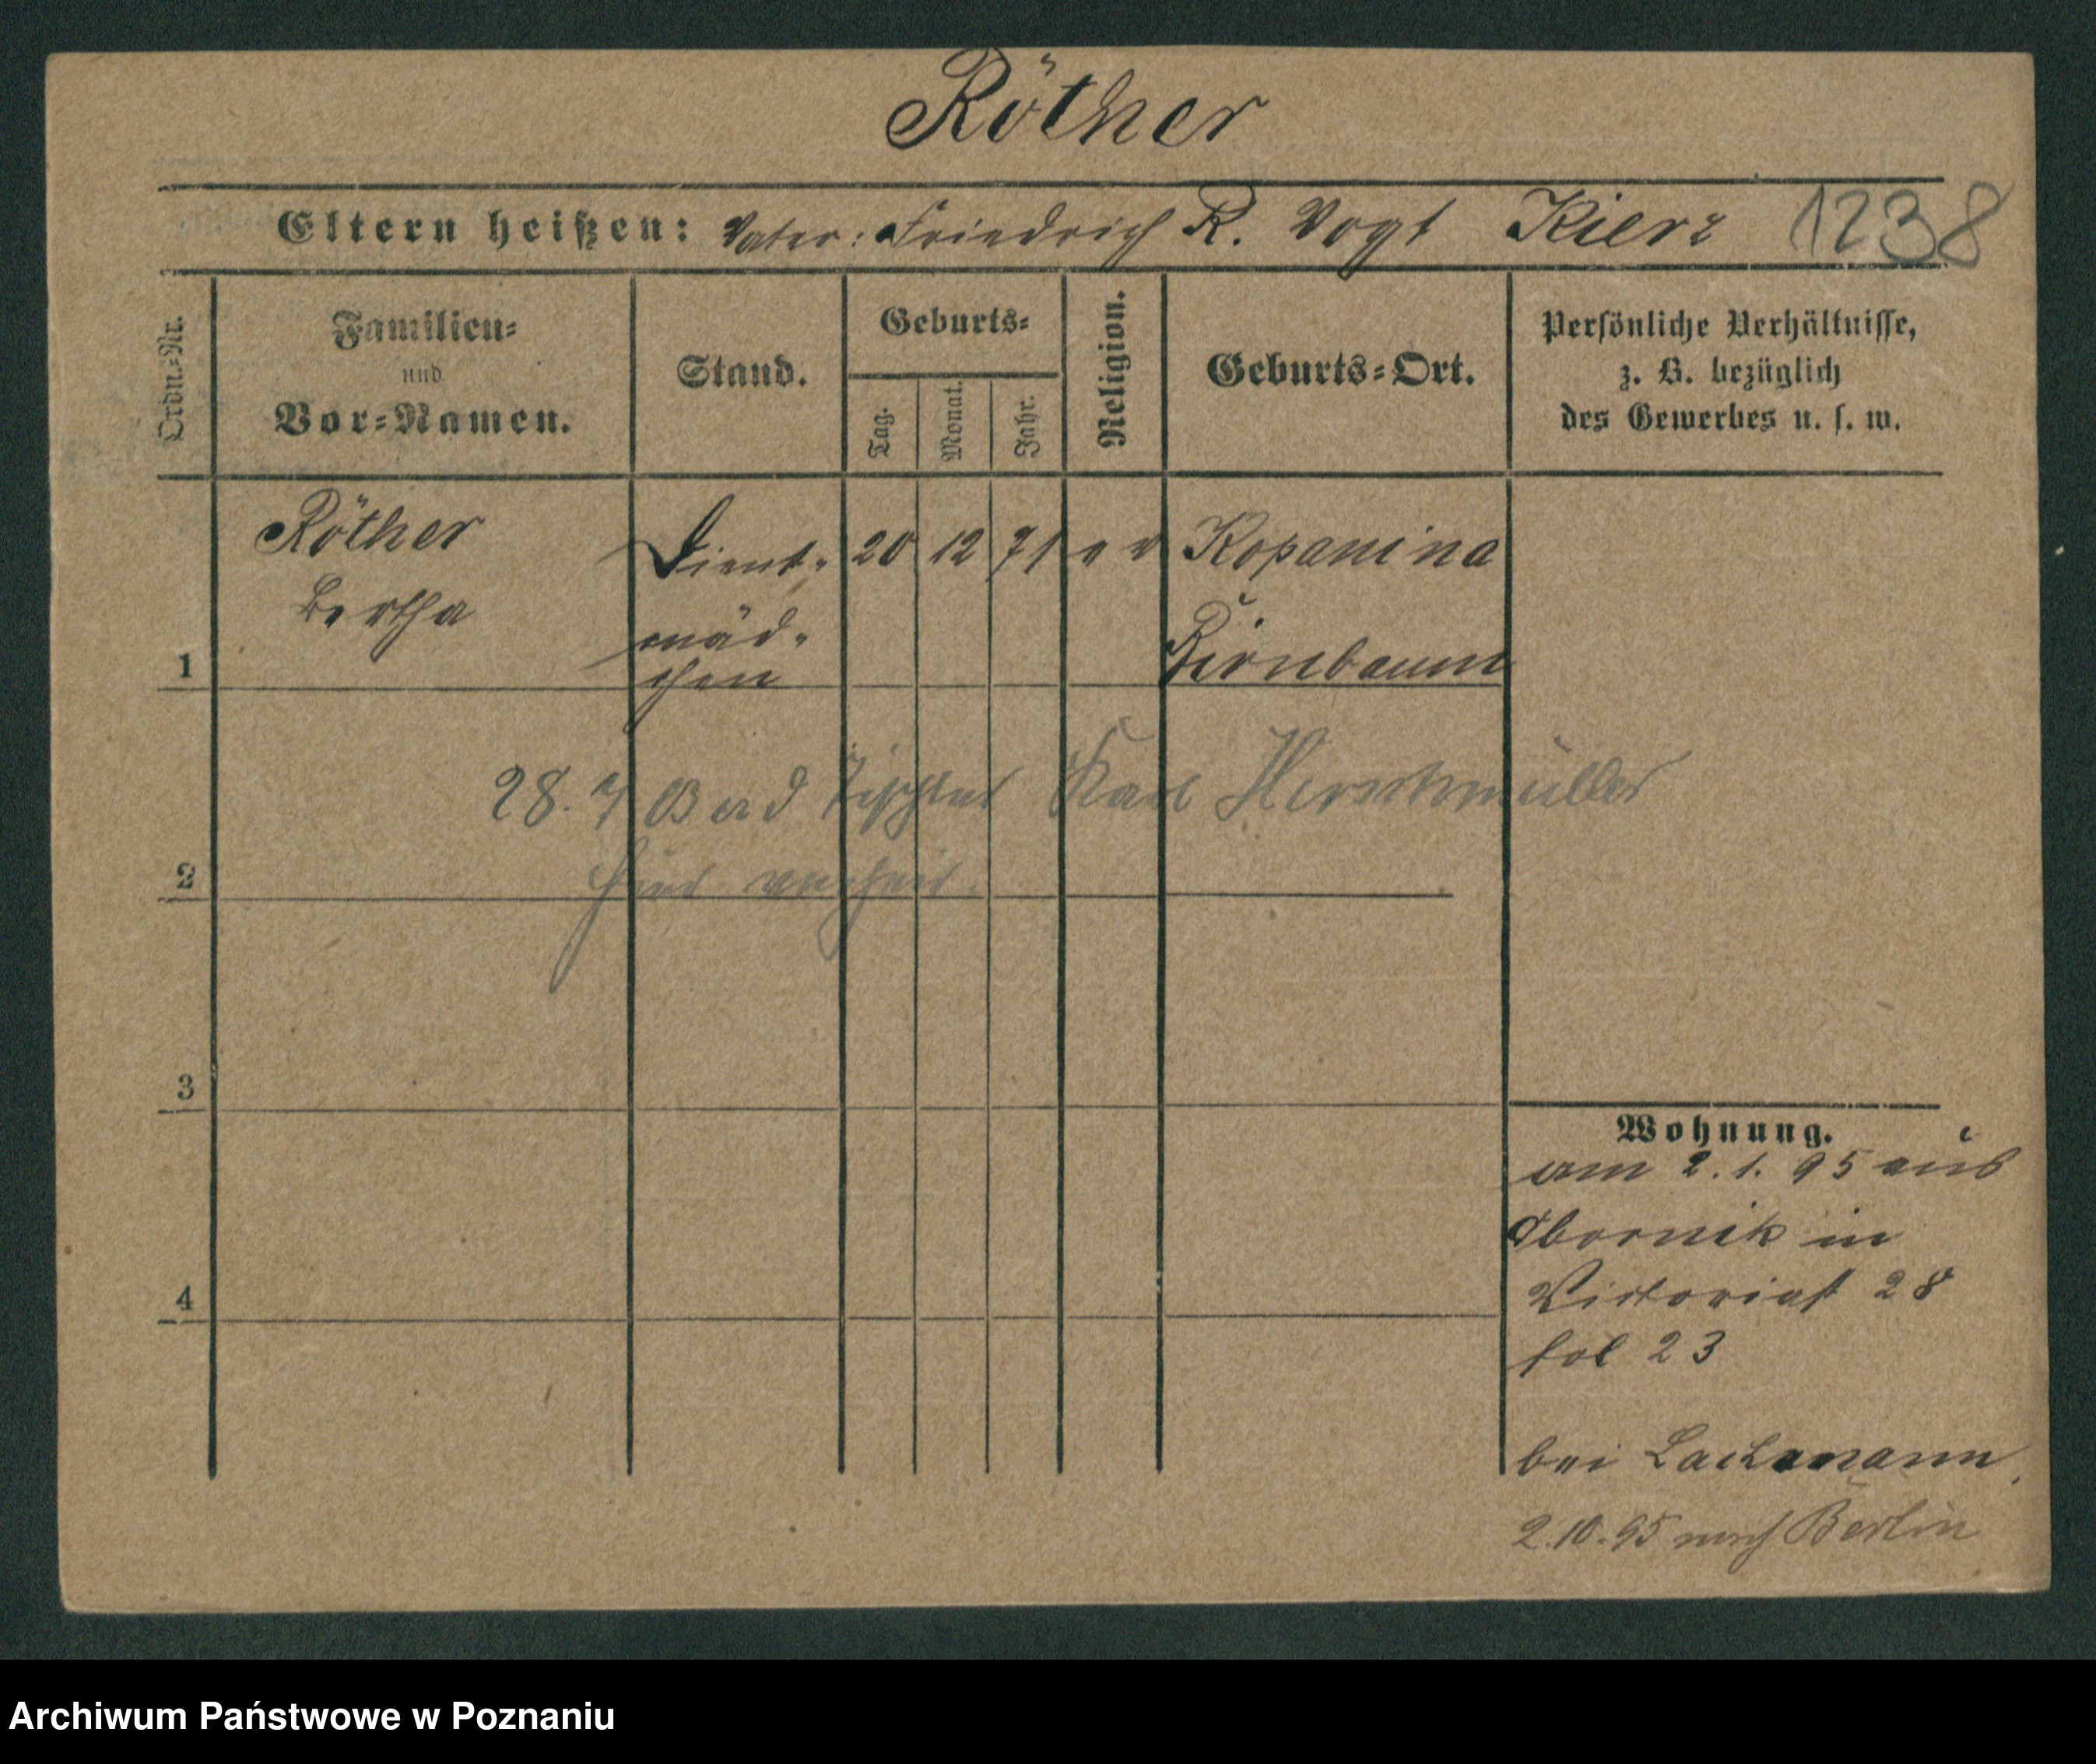 Röther
Eltern heißen: Vater: Friedrich R. Vogt Kierz 1238
Ordn.-Nr.
Familien-
und
Vor-Namen.
Stand.
Geburts-
Tag.
Monat.
Jahr.
Religion.
Geburts-Ort.
Persönliche Verhältnisse,
z. B. bezüglich
des Gewerbes u. s. w.
Röther
Bertha
Dienst-
mäd-
chen
20 12 71 ev Kopanina
Birnbaum
1
28. Tischler Karl
hier verheir.
2
3
4
Wohnung.
am 2. 1. 95 aus
Obornik in
Victoriast 28
fol 23
bei Lachmann
2.10.95 nach Berlin
Archiwum Państwowe w Poznaniu